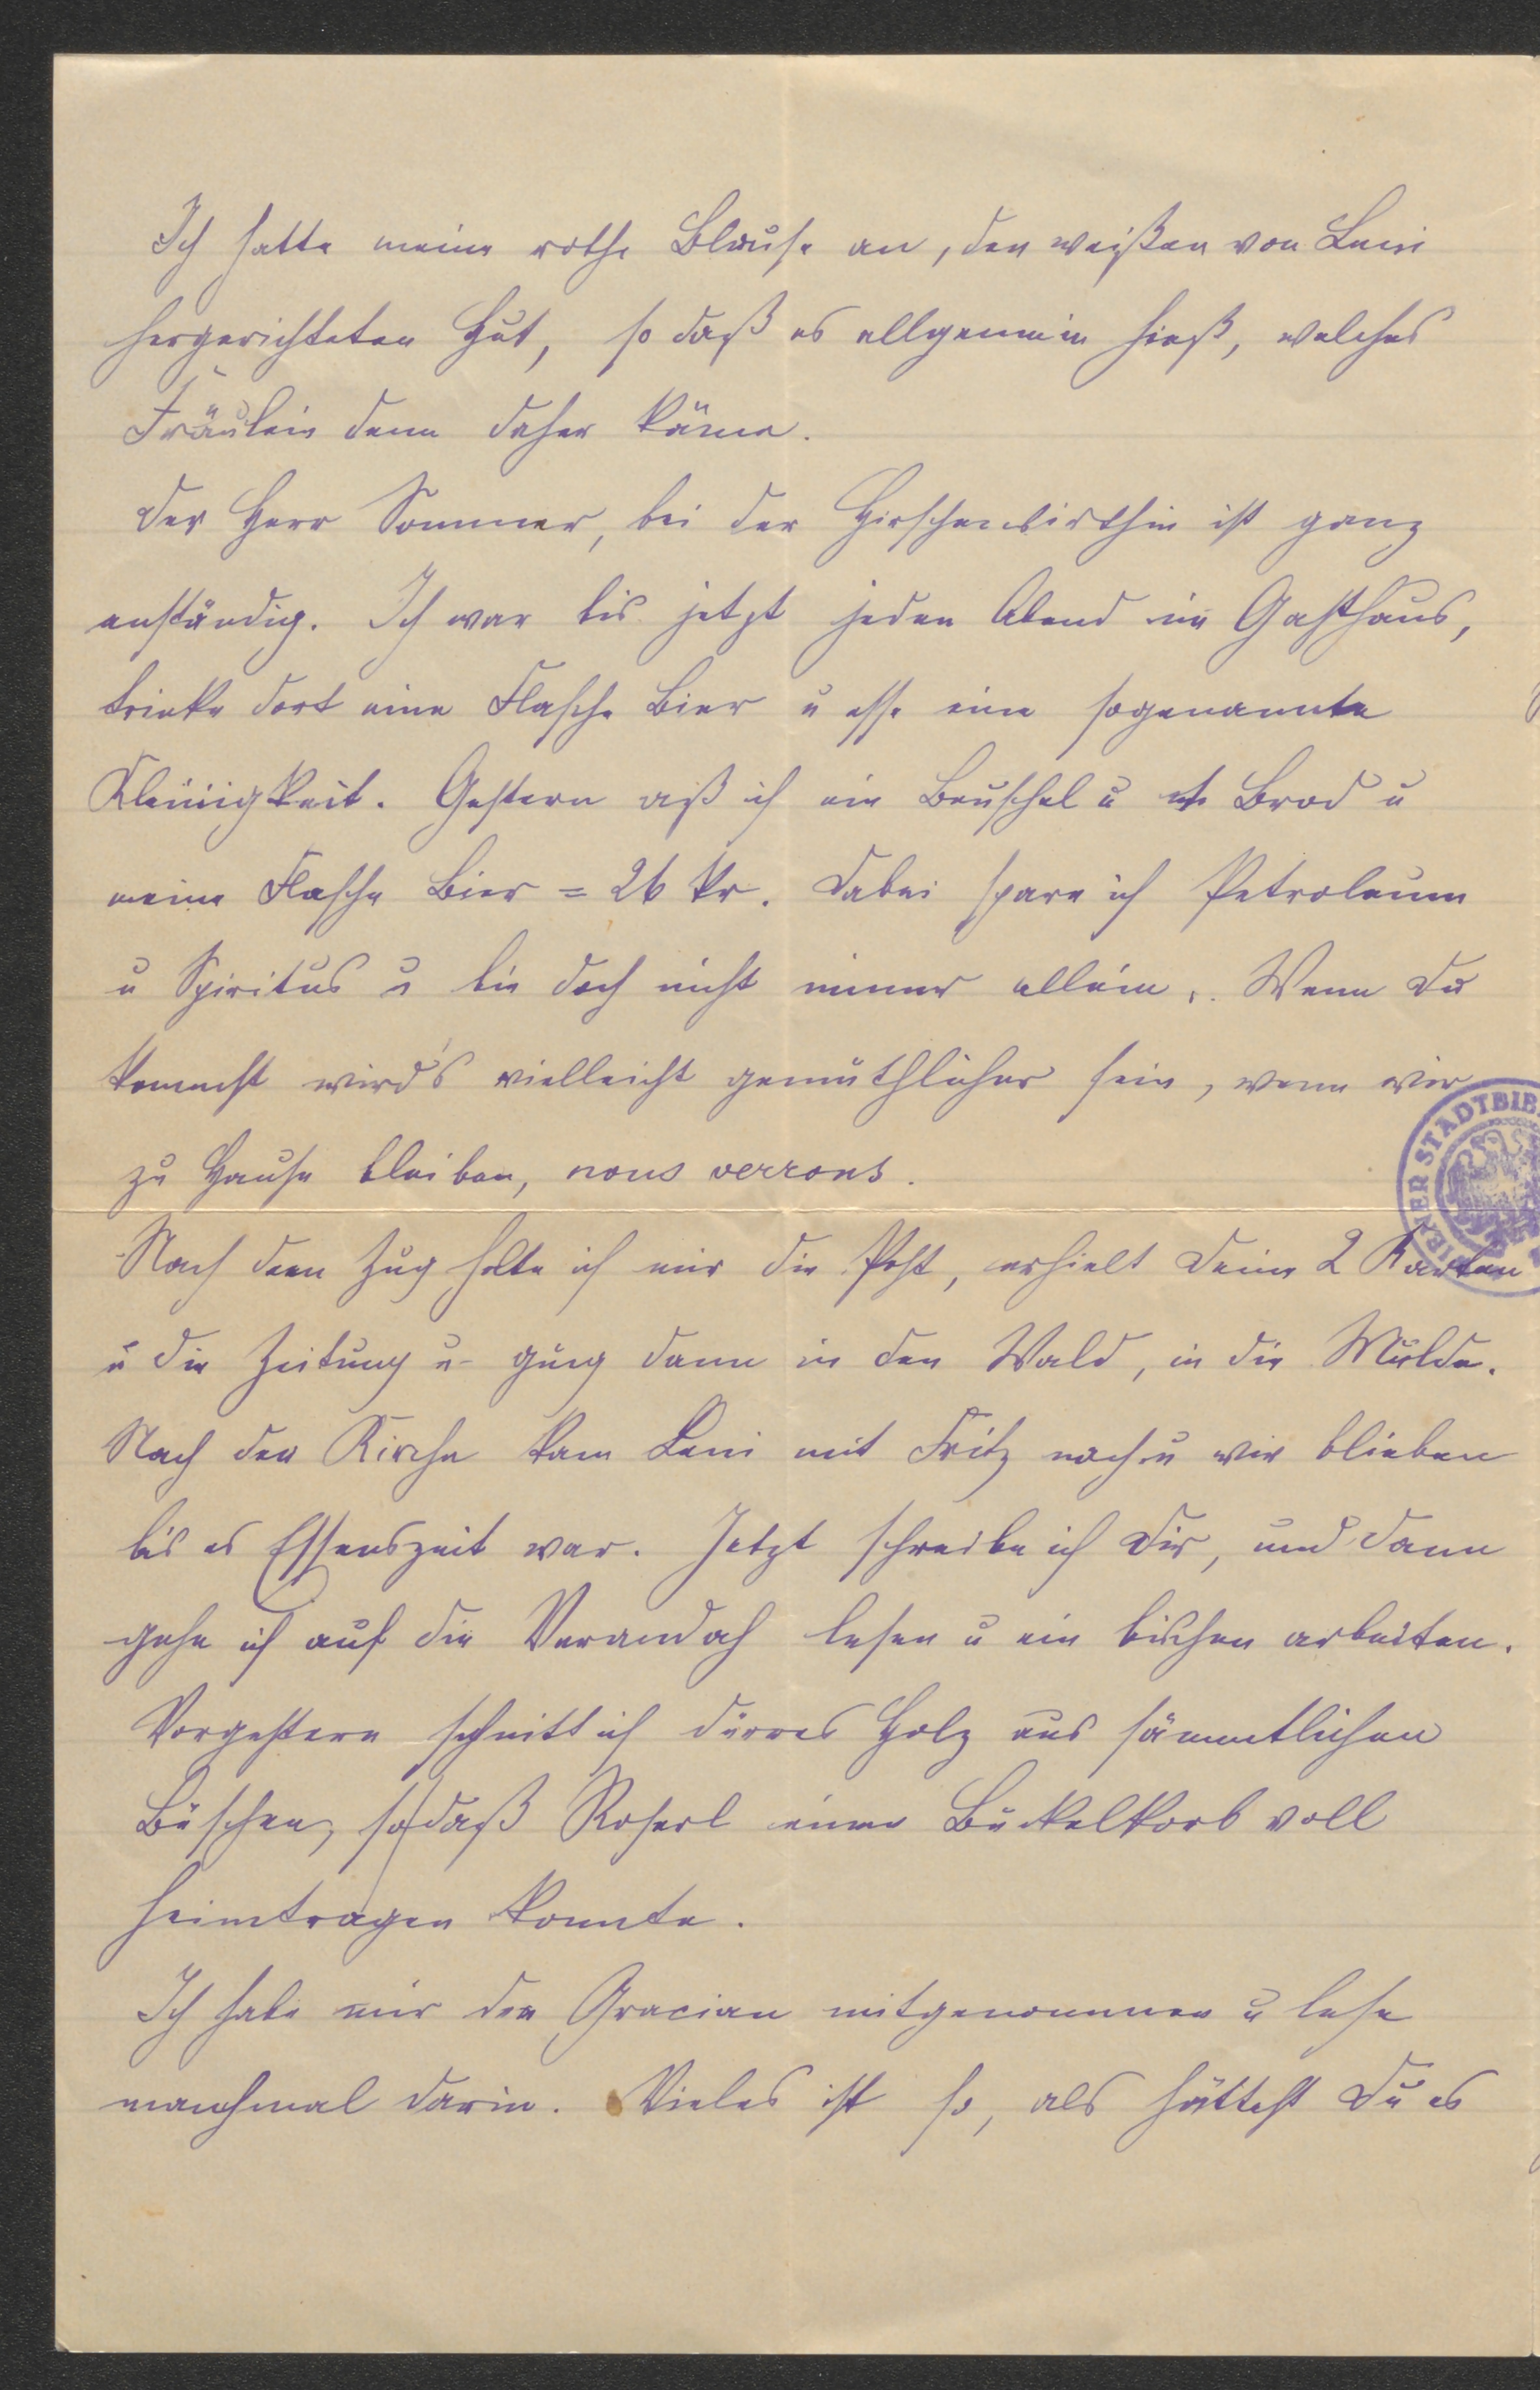 Ich hatte meine rothe Blouse an, den weißen von Leni
hergerichteten Hut, so daß es allgemein hieß, welches
Fräulein denn daher käme.
Der Herr Sommer, bei der Hirschenwirthin ist ganz
anständig. Ich war bis jetzt jeden Abend im Gasthaus,
trinke dort eine Flasche Bier u esse eine sogenannte
Kleinigkeit. Gestern aß ich ein Beuschel u Brod u
meine Flasche Bier = 26 kr. Dabei spare ich Petroleum
u Spiritus u bin doch nicht immer allein. Wenn Du
kommst wird's vielleicht gemüthlicher sein, wenn wir
zu Hause bleiben, nous verrons.
Nach dem Zug holte ich mir die Post, erhielt Deine 2 Karten
u die Zeitung u ging dann in den Wald, in die Mulde.
Nach der Kirche kam Leni mit Fritz nach u wir blieben
bis es Essenszeit war. Jetzt schreibe ich Dir, und dann
gehe ich auf die Verandah lesen u ein bischen arbeiten.
Vorgestern schnitt ich dürres Holz aus sämmtlichen
Büschen, sodaß Roserl einen Buckelkorb voll
heimtragen konnte.
Ich habe mir den Gracian mitgenommen u lese
manchmal darin. Vieles ist so, als hättest Du es
IENER STADTBIB